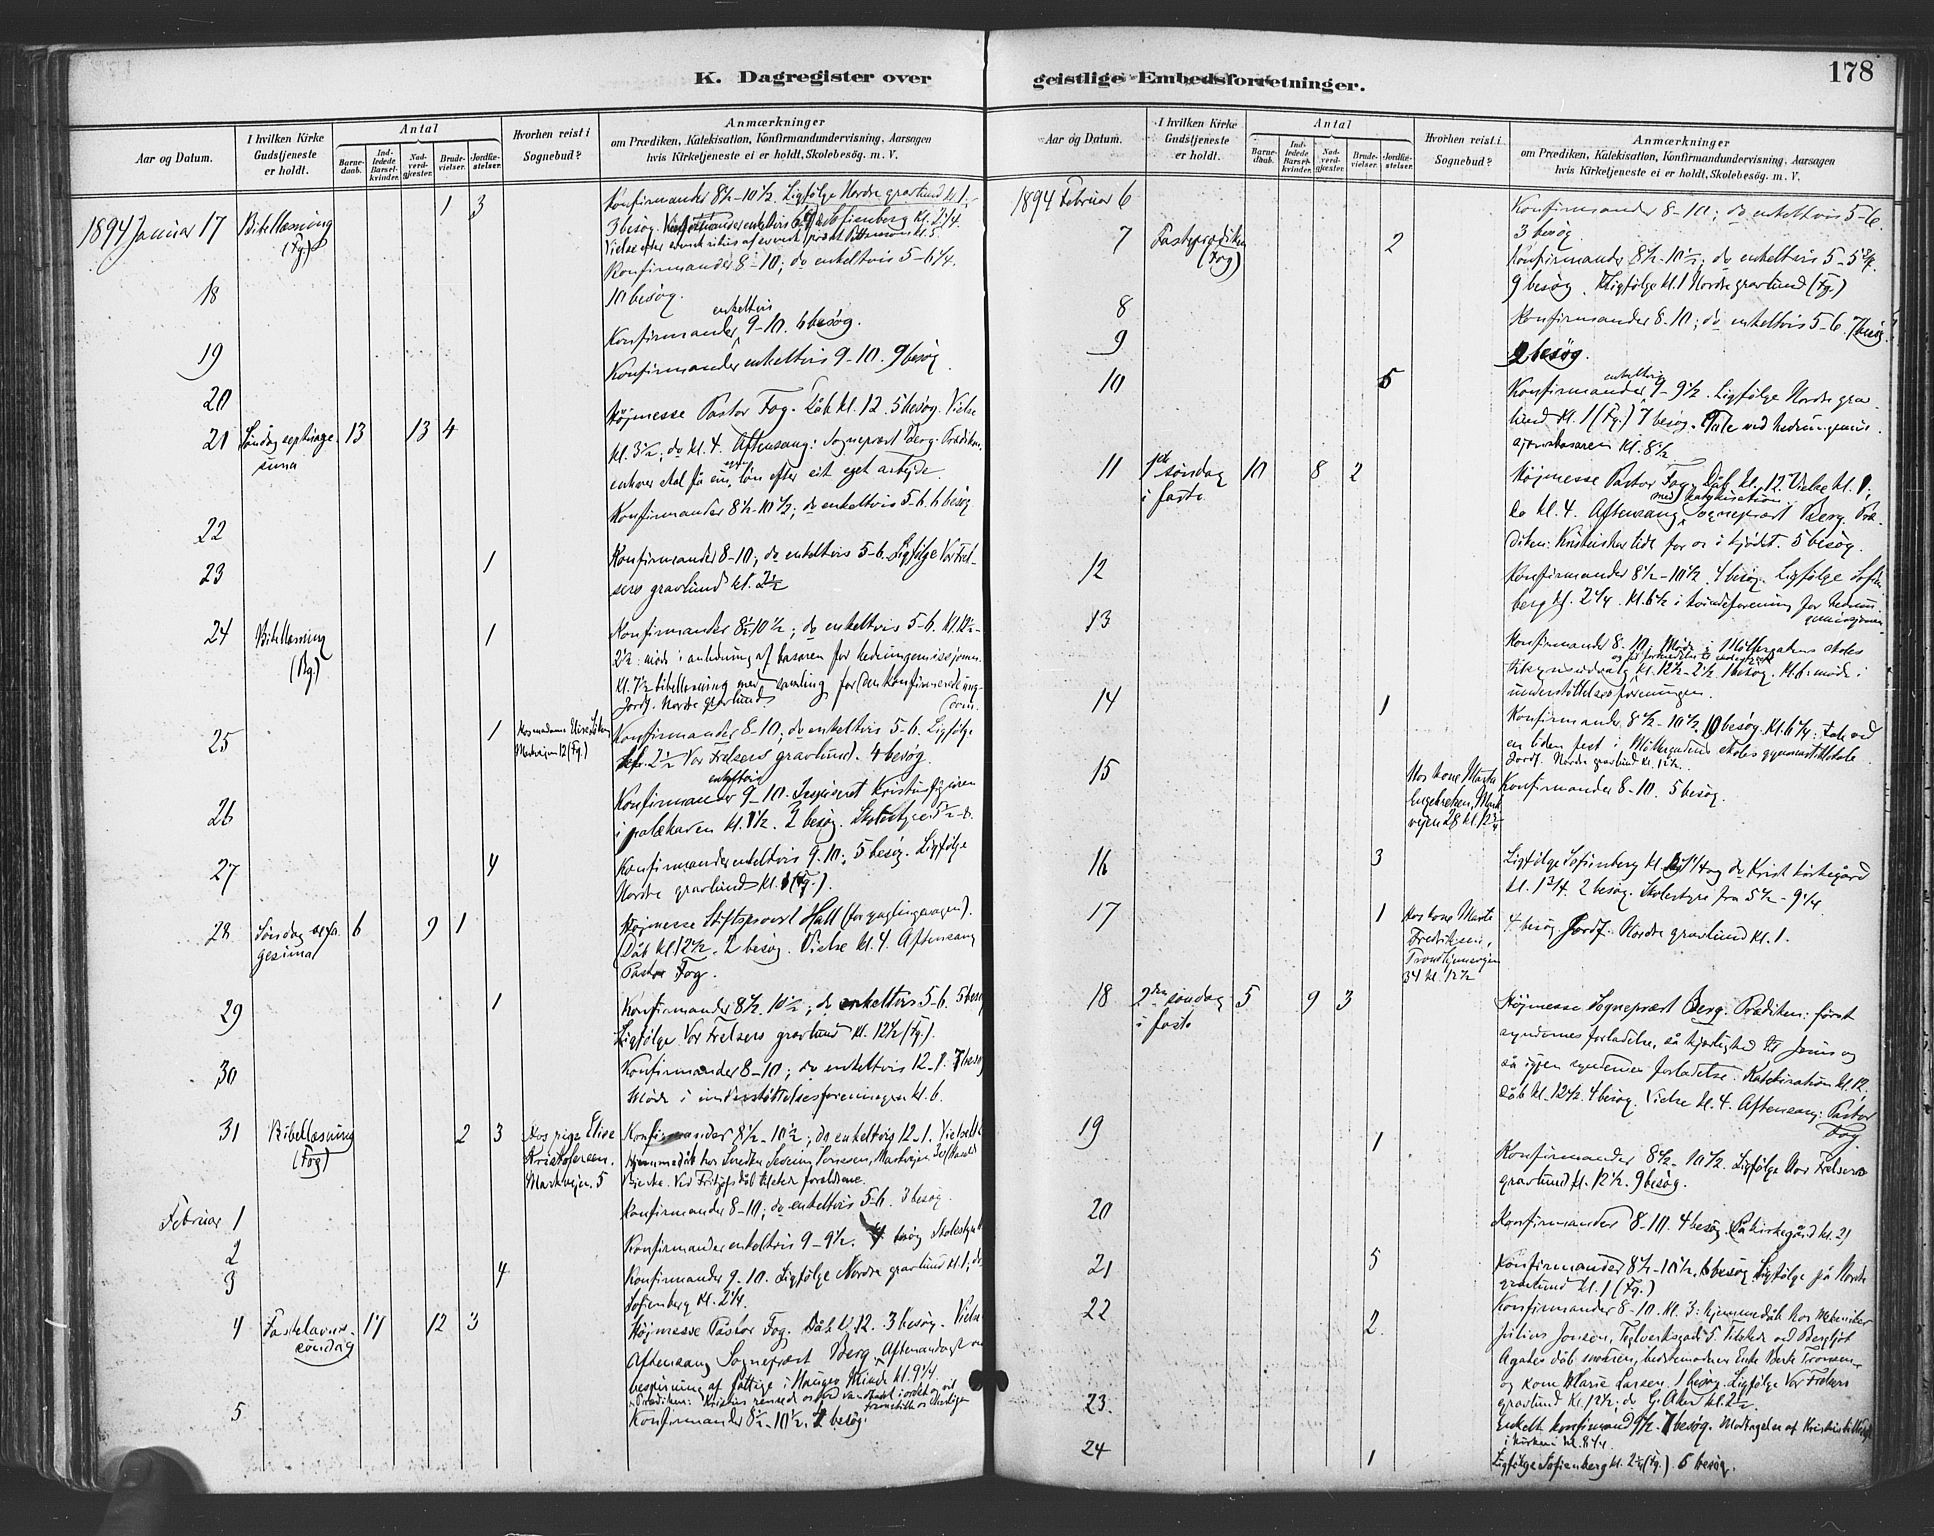 K. Dagregister over
geistlige Embedsforretninger.
178
Aar og Datum.
I hvilken Kirke
Gudstjeneste
er holdt.
Antal
Barne-
daab.
Ind-
ledede
Barsel-
kvinder.
Nad-
verd-
gjæster.
Brude-
vielser.
Jordfæ-
stelser.
Hvorhen reist i
Sognebud?
Anmærkninger
om Prædiken, Katekisation, Konfirmandundervisning, Aarsagen
hvis Kirketjeneste ei er holdt, Skolebesög. m. V.
1894 Januar 17 Bibellæsning (Fg.) 1 3
Konfirmander 8½-10½. Ligfølge Nordre gravlund kl. 1.
3 besøg. Sofienberg kl. 2¼.
18
Konfirmander 8-10; do enkeltvis 5-6¼.
10 besøg.
19
Konfirmander enkeltvis 9-10. 6 besøg.
20
Konfirmander enkeltvis 9-10. 9 besøg
21 Søndag septuage-
sima 13 13 4
Højmesse Pastor Fog. Dåb kl. 12. 5 besøg. Vielse
kl. 3½; do kl. 4. Aftensang: Sogneprest Berg. Prædiken:
enhver skal få sin løn efter sit eget arbejde.
22
Konfirmander 8½-10½; do enkeltvis 5-6. 6 besøg
23 1
Konfirmander 8-10; do enkeltvis 5-6. Ligfølge Vor Frel-
sers gravlund kl. 2½
24 Bibellæsning
(Bg.) 1
Konfirmander 8½-10½; do enkeltvis 5-6. kl.
2½: møde i anledning af basaren for hedningemissjonen.
kl. 7½ bibellæsning med samling for den konfirmerede ung-
dom. Jordf. Nordre gravlund
25 1
Markvejen 12 (Fg.)
Konfirmander 8-10; do enkeltvis 5-6. Ligfølge
kl. 2½ Vor Frelsers gravlund. 4 besøg.
26
Konfirmander enkeltvis 9-10. Kristusfiguren
kl. 1½. 2 besøg. Skolestyre 5½-8.
27 4
Konfirmander enkeltvis 9-10; 5 besøg. Ligfølge
Nordre gravlund kl. 1 (Fg.).
28 Søndag sexa-
gesima 6 9 1
Højmesse Stiftsprovst Hall
Dåb kl. 12½. 2 besøg. Vielse kl. 4. Aftensang
Pastor Fog.
29 1
Konfirmander 8½-10½; do enkeltvis 5-6. 5 besøg
Ligfølge Vor Frelsers gravlund kl. 12½ (Fg.).
30
Konfirmander 8-10; do enkeltvis 12-1. 7 besøg
Møde i understøttelsesforeningen kl. 6.
31 Bibellæsning
(Fog) 2 3
Hos pige Elise
Kristofersen.
Markvejen 5
Konfirmander 8½-10½; do enkeltvis 12-1.
Februar 1
Konfirmander 8-10; do enkeltvis 5-6. 3 besøg
2
Konfirmander enkeltvis 9-9½. 4 besøg Skolestyre
3 4
Konfirmander 9-10. Ligfølge Nordre gravlund kl. 1; do
Sofienberg kl. 2¼.
4 Fastelavns-
søndag 17 12 3
Højmesse Pastor Fog. Dåb kl. 12. 3 besøg. Vielse
Aftensang Sogneprest Berg. Aftenandagt
bespisning af fattige i Hauges Minde kl. 9¼.
5
Konfirmander 8½-10½. 2 besøg.
Aar og Datum.
I hvilken Kirke
Gudstjeneste
er holdt.
Antal
Barne-
daab.
Ind-
ledede
Barsel-
kvinder.
Nad-
verd-
gjæster.
Brude-
vielser.
Jordfæ-
stelser.
Hvorhen reist i
Sognebud?
Anmærkninger
om Prædiken, Katekisation, Konfirmandundervisning, Aarsagen
hvis Kirketjeneste ei er holdt, Skolebesög. m. V.
1894 Februar 6
Konfirmander 8-10; do enkeltvis 5-6.
3 besøg
7 Fasteprædiken
(Fog) 2
Konfirmander 8½-10½; do enkeltvis 5-5¾.
9 besøg. Ligfølge kl. 1 Nordre gravlund (Fg.)
8
Konfirmander 8-10; do enkeltvis 5-6. 7 besøg
9
2 besøg.
10 5
Konfirmander enkeltvis 9-9½. Ligfølge Nordre grav-
lund kl. 1 (Fg.) 7 besøg. Tale ved hedningemis-
sjonsbasaren kl. 8½
11 1ste søndag
i faste 10 8 2
Højmesse Pastor Fog. Dåb kl. 12. Vielse kl. 1;
do kl. 4. Aftensang med katekisation Sogneprest Berg. Præ-
diken: Kristus har lidt for os i kjødet. 5 besøg.
12
Konfirmander 8½-10½. 4 besøg. Ligfølge Sofien-
berg kl. 2¼. kl. 6½ i kvindeforening for hednin-
gemissjonen.
13
Konfirmander 8-10. Møde i Møllergatens skoles
tilsynsudvalg kl. 12½-2½. 1 besøg. kl. 6: møde i
understøttelsesforeningen.
14 1
Konfirmander 8½-10½. 10 besøg. kl. 6¼: tale ved
en liden fest i Møllergadens skoles gymnastiklokale.
Jordf. Nordre gravlund kl. 12½.
15
Hos kone Marta
Engebretsen, Mark-
vejen 28 kl. 12¾
Konfirmander 8-10. 5 besøg.
16 3
Ligfølge Sofienberg kl. og do Krist kirkegård
kl. 1¾. 2 besøg. Skolestyre fra 5½-9¼.
17 1
Hos kone Marte
Fredriksen,
Trondhjemsvejen
34 kl. 12½
4 besøg Jordf. Nordre gravlund kl. 1.
18 2den søndag
i faste 5 9 3
Højmesse Sogneprest Berg. Prædiken: først
syndernes forladelse, så kjærlighed til Jesus og
så igjen syndernes forladelse. Katekisation kl. 12.
Dåb kl. 12½. 4 besøg. Vielse kl. 4. Aftensang: Pastor
Fog.
19 1
Konfirmander 8½-10½. Ligfølge Vor Frelsers
gravlund kl. 12½. 9 besøg.
20
Konfirmander 8-10. 4 besøg. (På kirkegård kl. 2)
21 5
Konfirmander 8½-10½. 6 besøg Ligfølge på Nordre
gravlund kl. 1 (Fg.)
22 2
Konfirmander 8-10. Kl. 3: hjemmedåb hos
Julius Jonsen, Teglverksgade 5.
og kone Marie Larsen. 1 besøg. Ligfølge Vor Frelsers
gravlund kl. 12½; do G. Aker kl. 2½.
23.
Enkelt konfirmand 9½. 7 besøg. Modtagelse af
i kirken kl. 8¼.
24 1
Ligfølge Sofienberg kl. 2¼ (Fg.). 6 besøg.